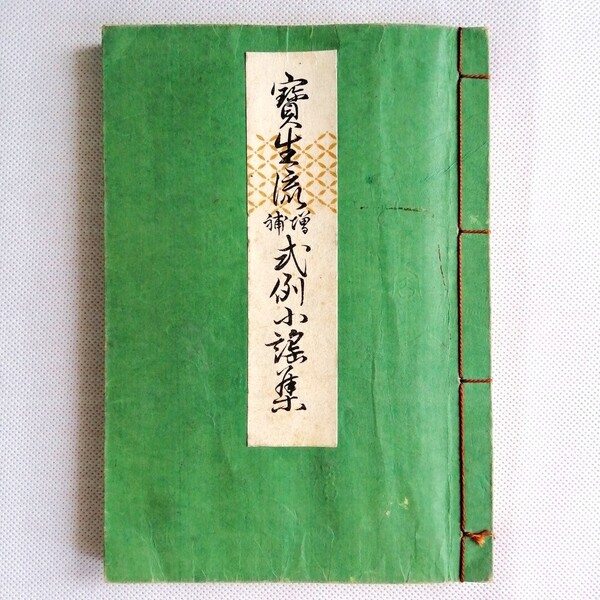 寶生流増補式例小謡集